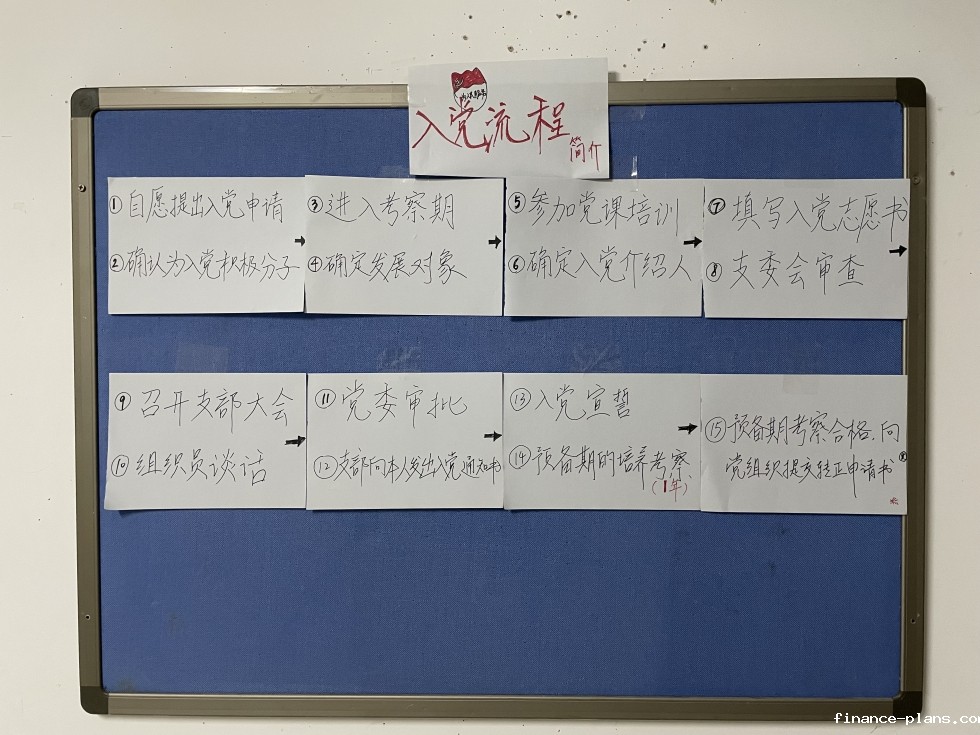 入党流程
简介
① 自愿提出入党申请
② 确认为入党积极分子
③ 进入考察期
④ 确定发展对象
⑤ 参加党课培训
⑥ 确定入党介绍人
⑦ 填写入党志愿书
⑧ 支委会审查
⑨ 召开支部大会
⑩ 组织员谈话
⑪ 党委审批
⑫ 支部向本人发出入党通知书
⑬ 入党宣誓
⑭ 预备期的培养考察
(1年)
⑮ 预备期考察合格.向
党组织提交转正申请书
finance-plans.com